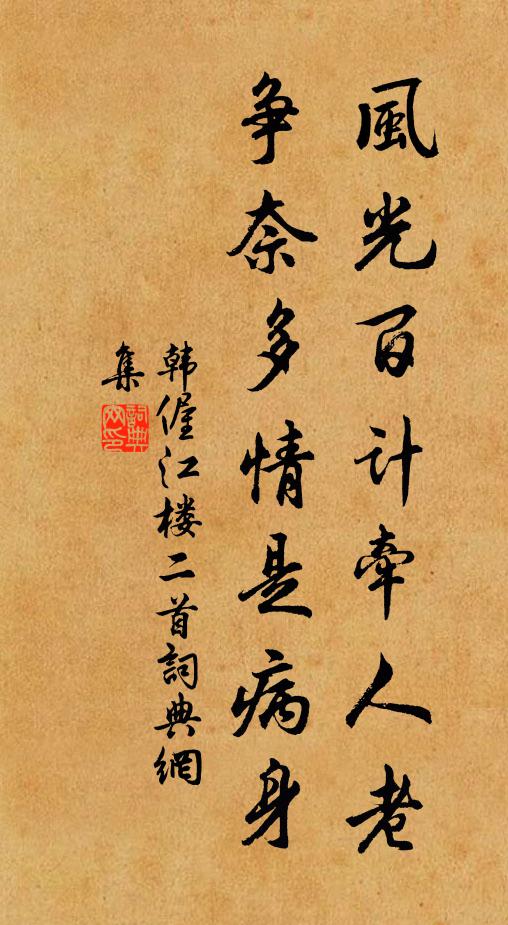 風光百计牽人老
争奈多情是病身
韩偓江楼二首詞典網
集
詞典
网印